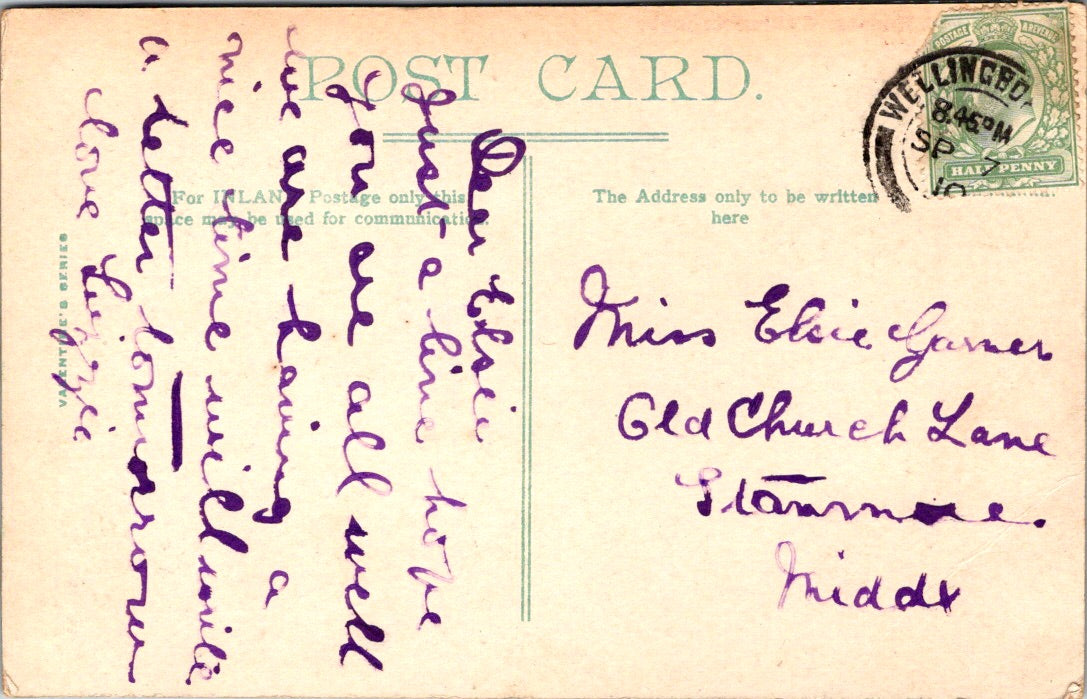 POST CARD.
For INLAND Postage only this
space may be used for communication.
The Address only to be written
here
VALENTINE'S SERIES
POSTAGE REVENUE
HALFPENNY
WELLINGBO
8.45PM
SP 7
10
Dear Elsie
Just a line hope
you are all well
we are having a
nice time will write
a letter tomorrow
love Lizzie
Miss Elsie Garner
Old Church Lane
Stanmore.
Middx